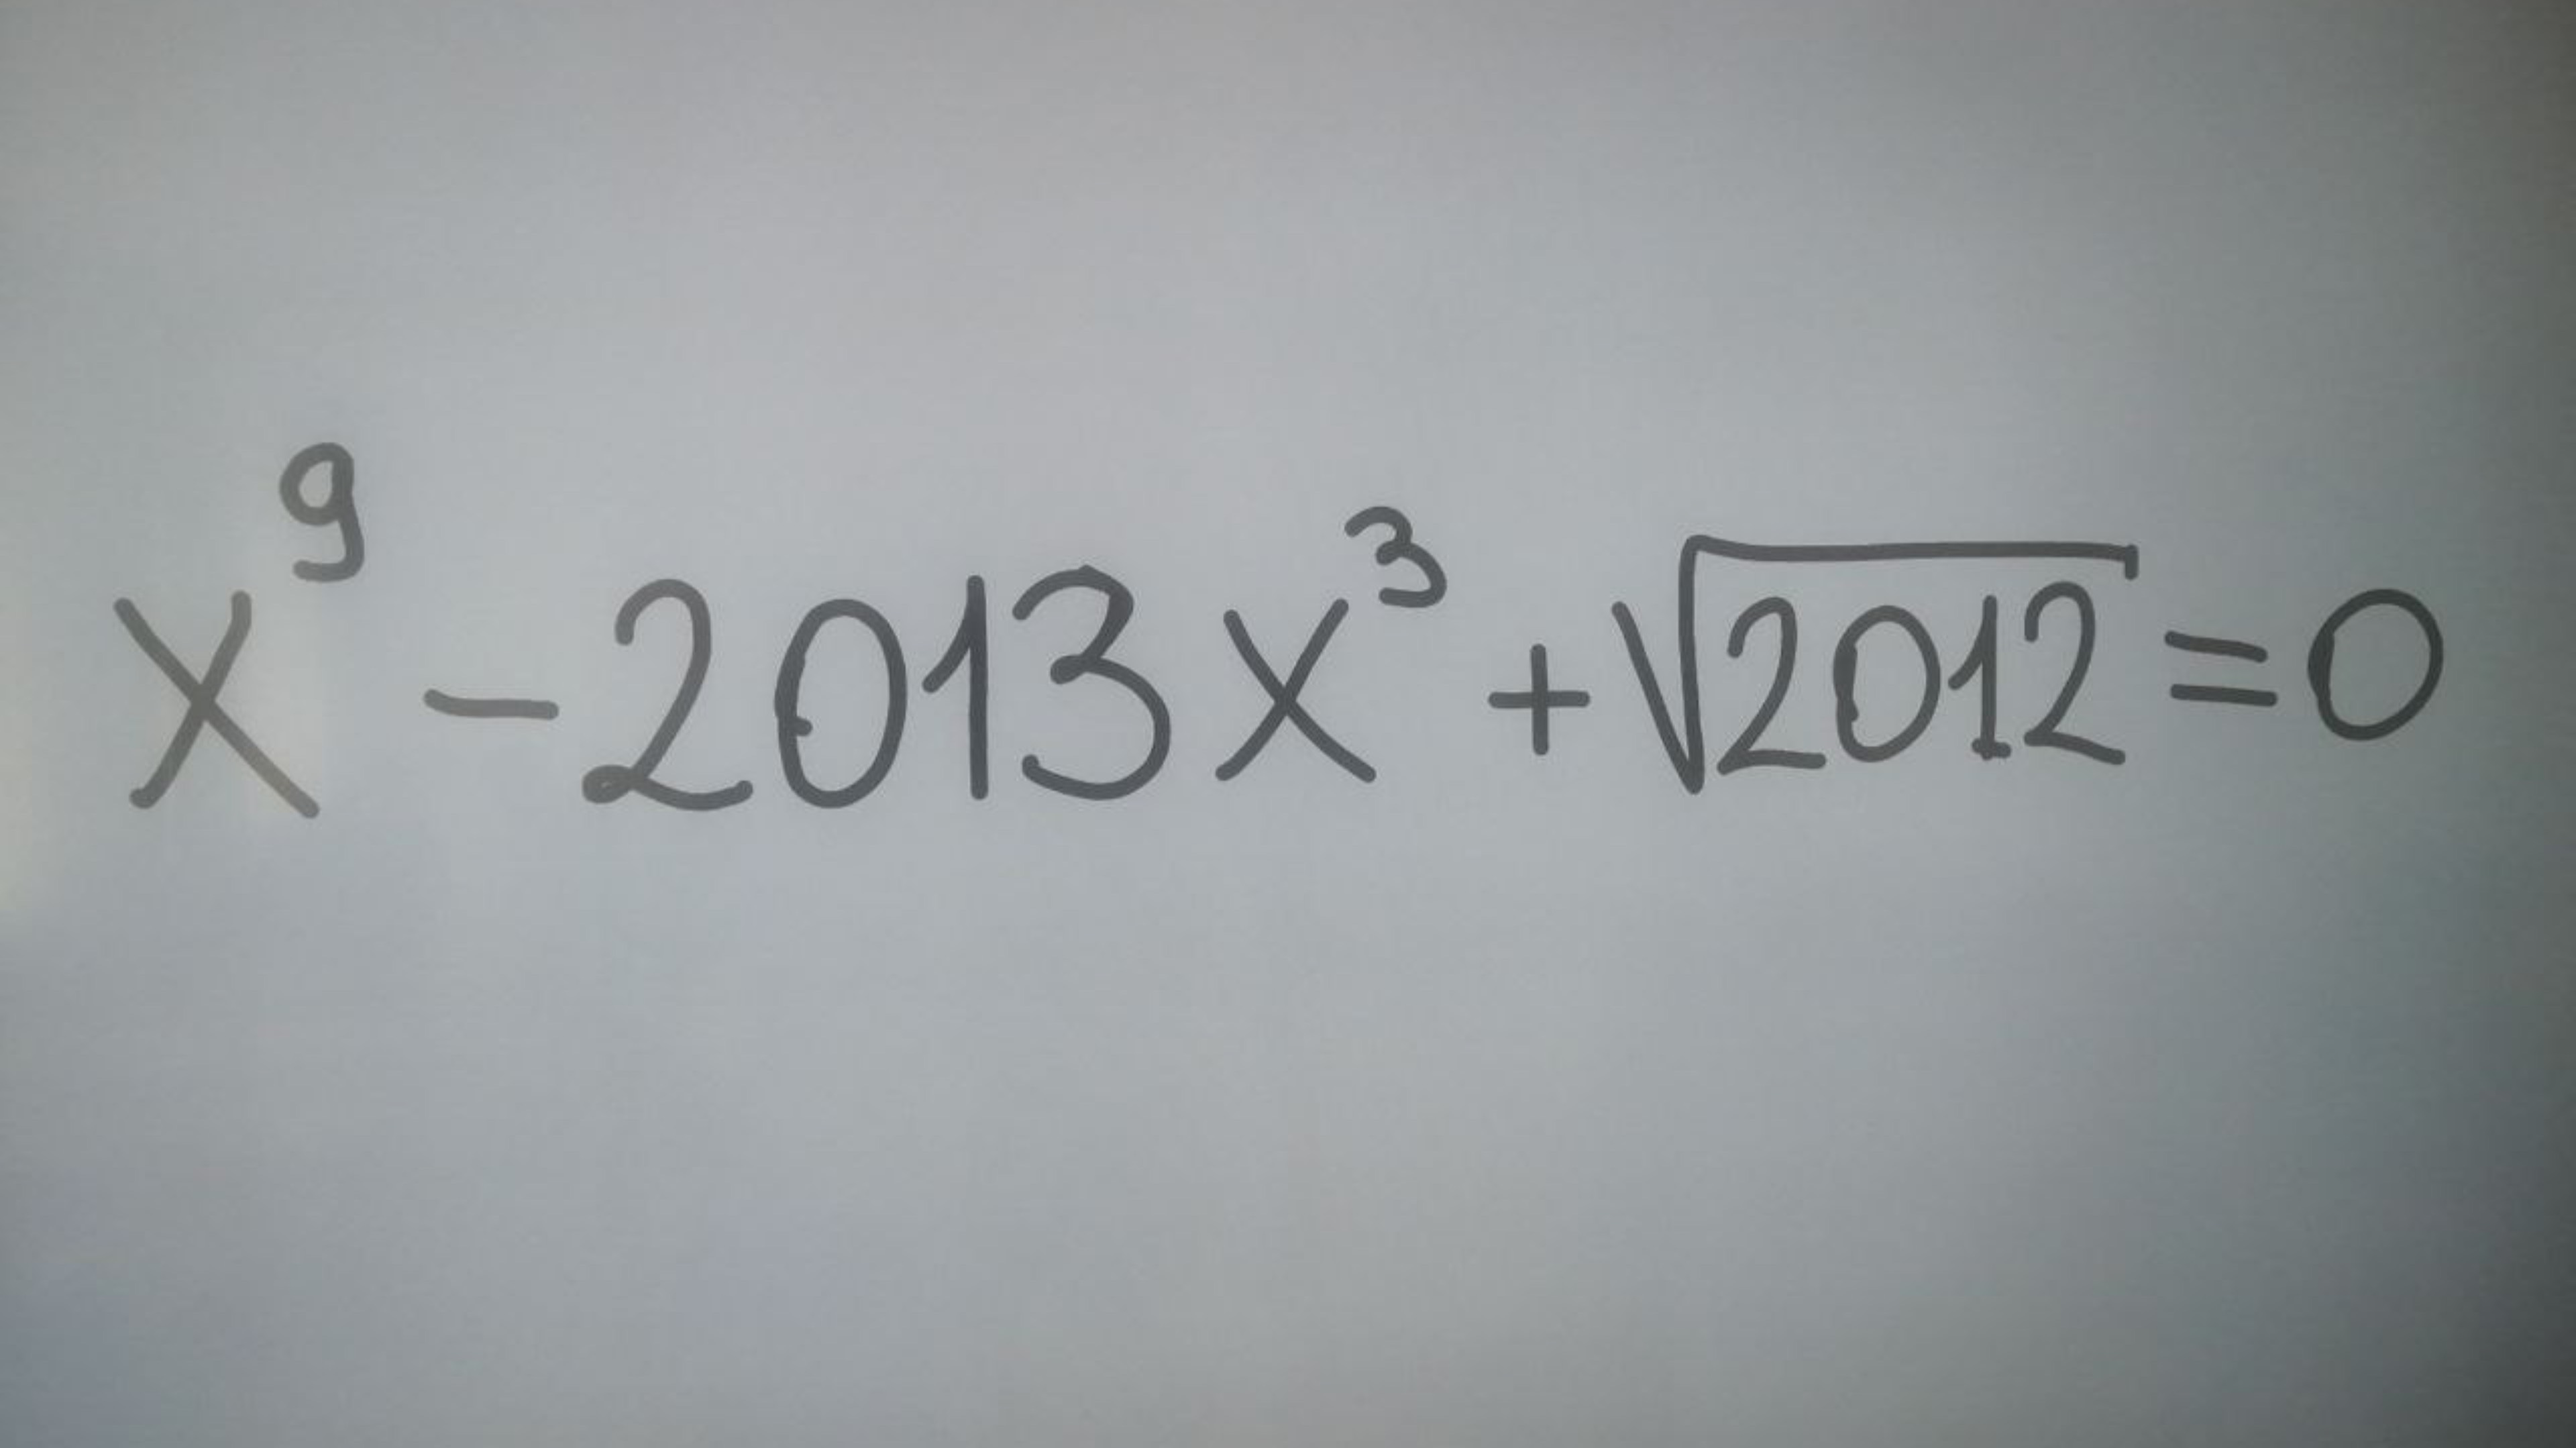 x⁹ - 2013x³ + √2012 = 0